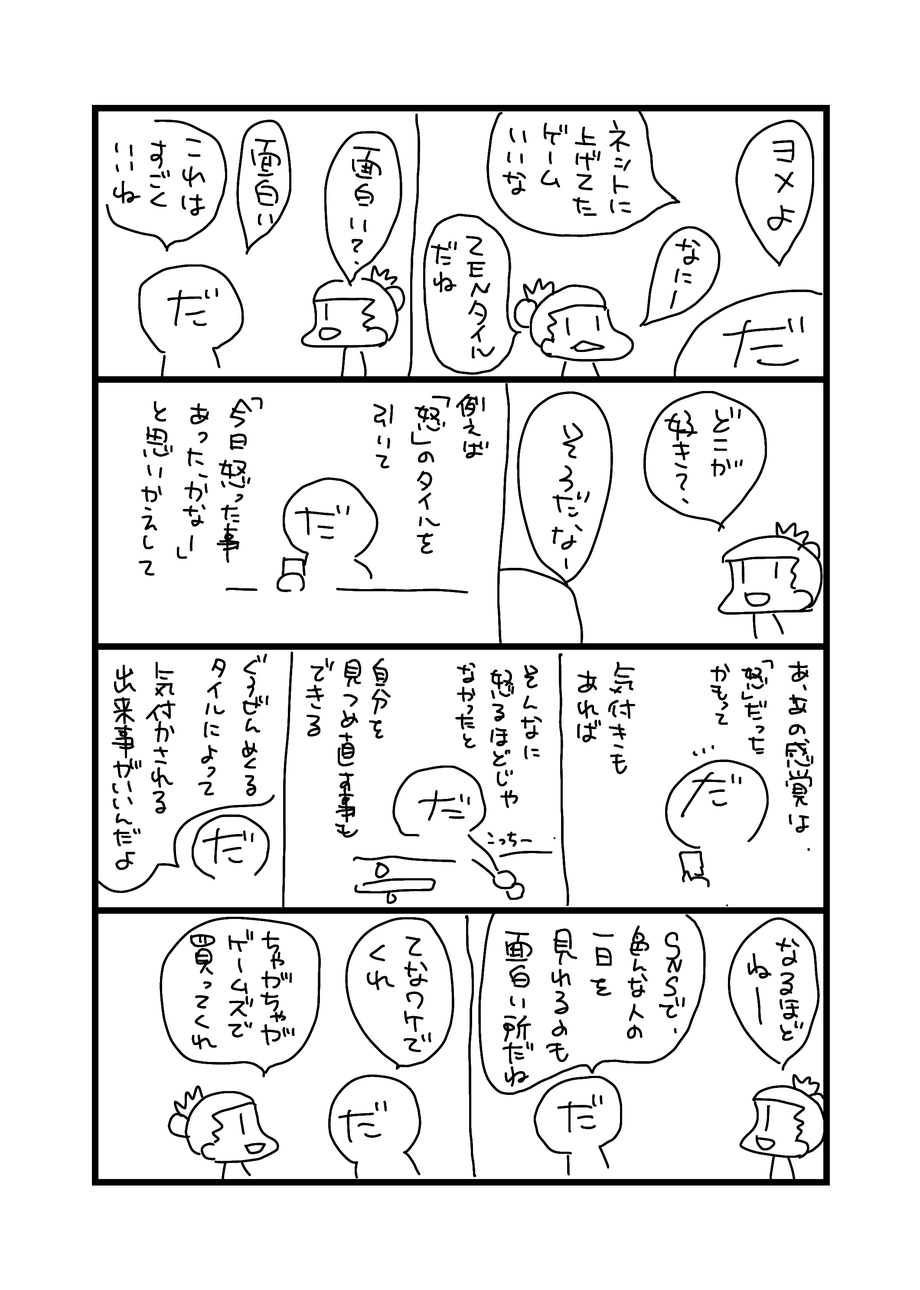 ヨメよ
だ
なにー
ネットに
上げてた
ゲーム
いいな
ZENタイル
だね
面白い?
面白い
これは
すごく
いいね
だ
どこが
好き?
そうだなー
例えば
「怒」のタイルを
引いて
だ
「今日怒った事
あったかなー」
と思いかえして
あ、あの感覚は
「怒」だった
かもって
…
だ
気付きも
あれば
そんなに
怒るほどじゃ
なかったと
だ
こっちー
自分を
見つめ直す事も
できる
ぐうぜんめくる
タイルによって
気付かされる
出来事がいいんだよ
だ
なるほど
ねー
SNSで、
色んな人の
一日を
見れるのも
面白い所だね
だ
てなワケで
くれ
だ
ちゃがちゃが
ゲームズで
買ってくれ